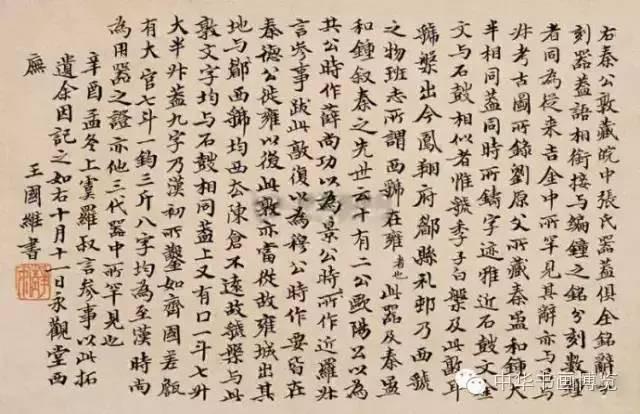 右秦公敦藏皖中張氏器蓋俱全銘辭分
刻器蓋語相銜接与編鐘之銘分刻數鐘
者同為從来吉金中所罕見其辭亦与吕与
尗考古圖所錄劉原父所藏秦盄和鐘大
半相同蓋同時所鑄字迹雅近石鼓文金
文与石鼓相似者惟虢季子白槃及此敦耳
虢槃出今鳳翔府郿縣礼邨乃西虢
之物班志所謂西虢在雍者也此器及秦盄
和鍾叙秦之先世云十有二公歐陽公以為
共公時作薛尚功以為景公時所作近羅尗
言參事跋此敦復以為穆公時作要皆在
秦德公徙雍以後此敦亦當從故雍城出其
地与郿西虢均西去陳倉不遠故虢槃与此
敦文字均与石鼓相同蓋上又有口一斗七升
大半升蓋九字乃漢初所鑿如齊國差
有大官七斗一鈞三斤八字均為至漢時尚
為用器之證亦他三代器中所罕見也
辛酉孟冬上虞羅叔言參事以此拓
遺余因記之如右十月十一日永觀堂西
廡 王國維書
中华书画博览